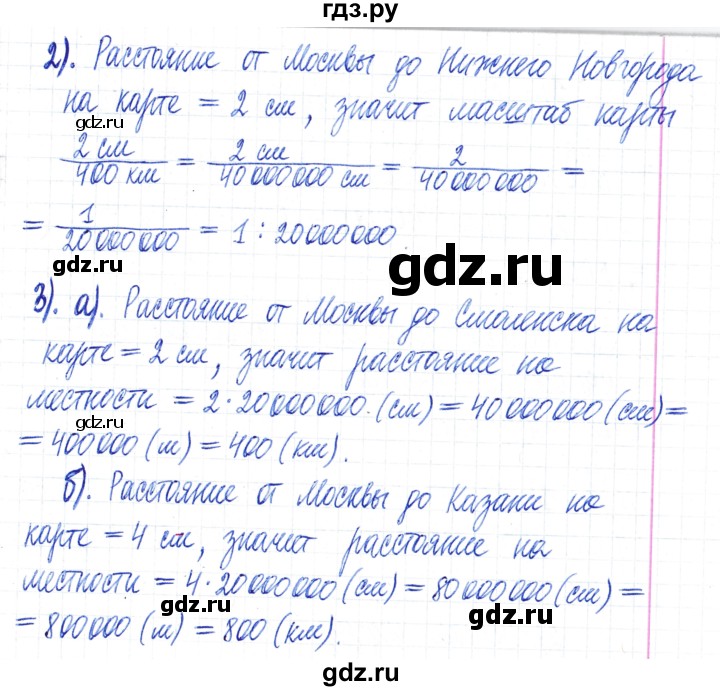 гдз.ру
2). Расстояние от Москвы до Нижнего Новгорода
на карте = 2 см, значит масштаб карты
gdz.ru
2 см / 400 км = 2 см / 40 000 000 см = 2 / 40 000 000 =
gdz.ru
= 1 / 20 000 000 = 1 : 20 000 000.
gdz.ru
gdz.ru
3). а). Расстояние от Москвы до Смоленска на
карте = 2 см, значит расстояние на
gdz.ru
местности = 2 · 20 000 000. (см) = 40 000 000 (см) =
gdz.ru
= 400 000 (м) = 400 (км).
б). Расстояние от Москвы до Казани на
gdz.ru
карте = 4 см, значит расстояние на
местности = 4 · 20 000 000 (см) = 80 000 000 (см) =
gdz.ru
= 800 000 (м) = 800 (км).
gdz.ru
gdz.ru